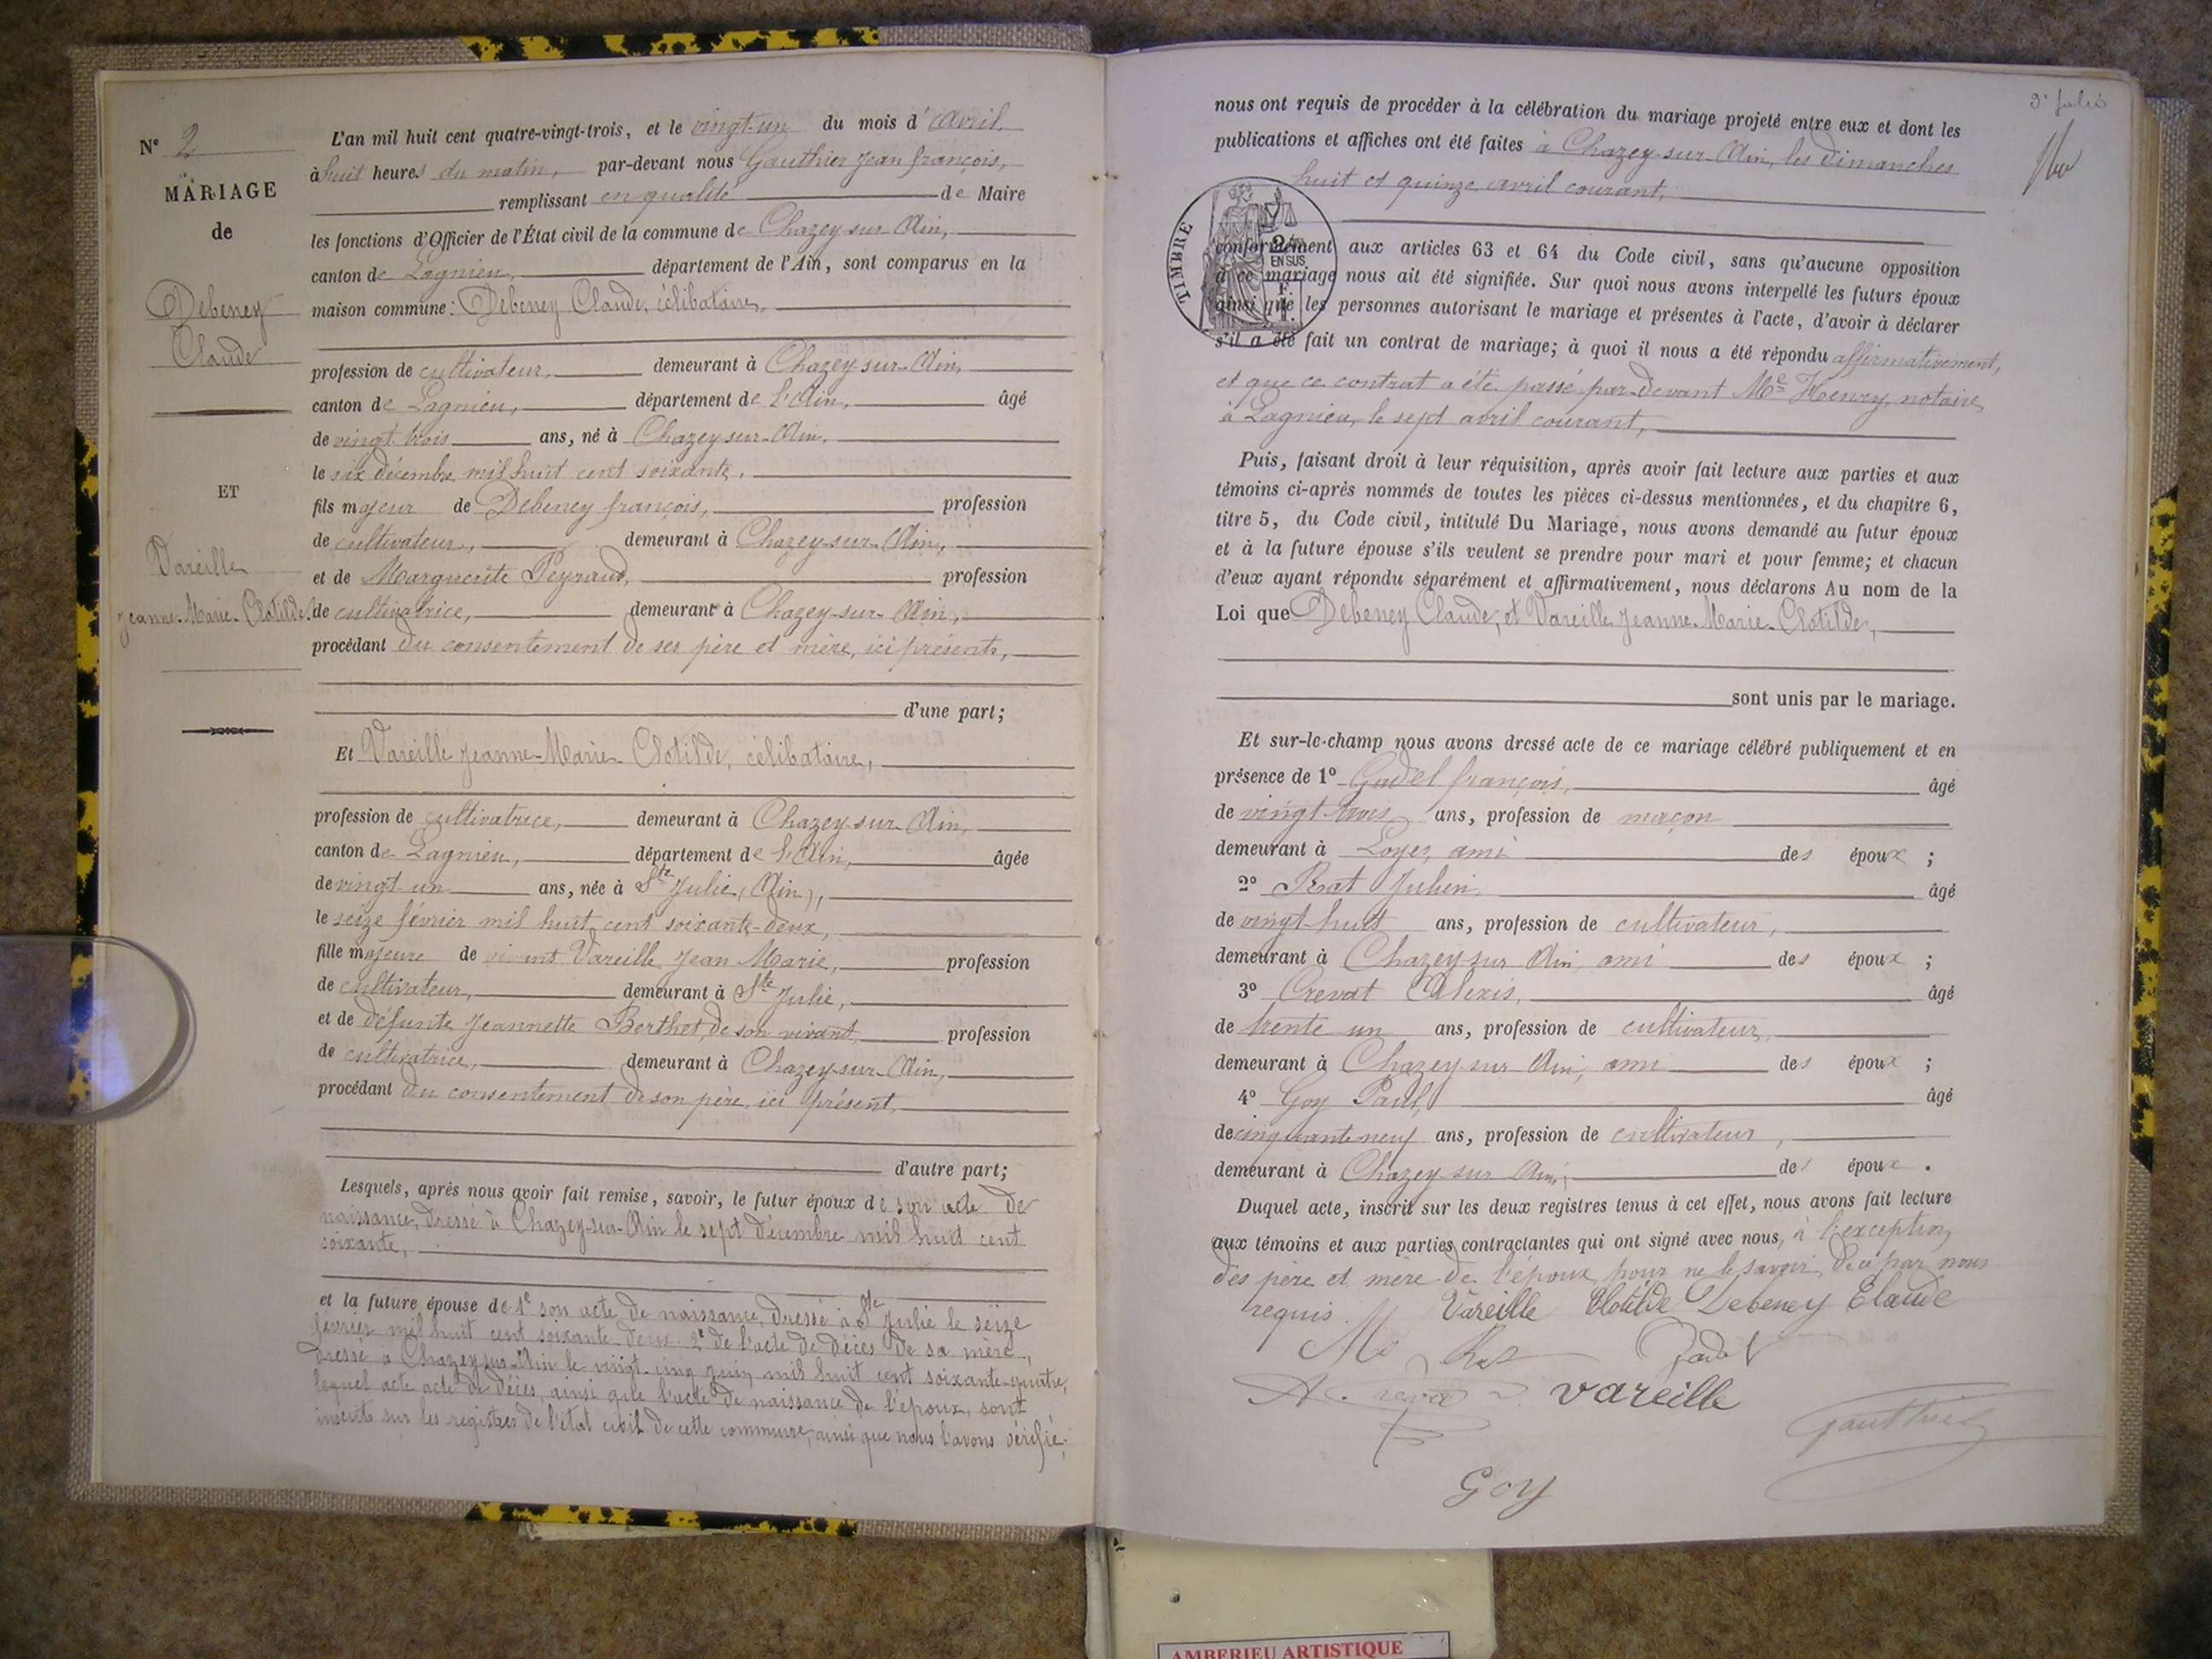 N° 2
MARIAGE
de
Debeney
Claude
ET
Vareille
Jeanne-Marie-Clotilde
L'an mil huit cent quatre-vingt-trois, et le vingt-un du mois d'Avril
à huit heures du matin, par-devant nous Gauthier Jean françois,
remplissant en qualité de Maire
les fonctions d'Officier de l'État civil de la commune de Chazey-sur-Ain,
canton de Lagnieu, département de l'Ain, sont comparus en la
maison commune : Debeney Claude, célibataire,
profession de cultivateur, demeurant à Chazey-sur-Ain,
canton de Lagnieu, département de l'Ain, âgé
de vingt-trois ans, né à Chazey-sur-Ain,
le six décembre mil huit cent soixante,
fils majeur de Debeney françois, profession
de cultivateur, demeurant à Chazey-sur-Ain,
et de Marguerite Peyraud, profession
de cultivatrice, demeurant à Chazey-sur-Ain,
procédant du consentement de ses père et mère, ici présents,
d'une part;
Et Vareille Jeanne-Marie-Clotilde, célibataire,
profession de cultivatrice, demeurant à Chazey-sur-Ain,
canton de Lagnieu, département de l'Ain, âgée
de vingt-un ans, née à Ste Julie, (Ain),
le seize février mil huit cent soixante-deux,
fille majeure de vivant Vareille Jean Marie, profession
de cultivateur, demeurant à Ste Julie,
et de défunte Jeannette Berthet, de son vivant profession
de cultivatrice, demeurant à Chazey-sur-Ain,
procédant du consentement de son père, ici présent,
d'autre part;
Lesquels, après nous avoir fait remise, savoir, le futur époux de son acte de
naissance, dressé à Chazey-sur-Ain le sept décembre mil huit cent
soixante,
et la future épouse de 1° son acte de naissance, dressé à Ste Julie le seize
février mil huit cent soixante-deux. 2° de l'acte de décès de sa mère,
dressé à Chazey-sur-Ain le vingt-cinq juin mil huit cent soixante-quatre,
lequel acte acte de décès, ainsi que l'acte de naissance de l'époux, sont
inscrits sur les registres de l'état civil de cette commune, ainsi que nous l'avons vérifié;
3e folio
nous ont requis de procéder à la célébration du mariage projeté entre eux et dont les
publications et affiches ont été faites à Chazey-sur-Ain, les dimanches
huit et quinze avril courant,
TIMBRE
2/10
EN SUS
conformément aux articles 63 et 64 du Code civil, sans qu'aucune opposition
à ce mariage nous ait été signifiée. Sur quoi nous avons interpellé les futurs époux
ainsi que les personnes autorisant le mariage et présentes à l'acte, d'avoir à déclarer
s'il a été fait un contrat de mariage; à quoi il nous a été répondu affirmativement,
et que ce contrat a été passé par-devant Me Henry, notaire
à Lagnieu, le sept avril courant,
Puis, faisant droit à leur réquisition, après avoir fait lecture aux parties et aux
témoins ci-après nommés de toutes les pièces ci-dessus mentionnées, et du chapitre 6,
titre 5, du Code civil, intitulé Du Mariage, nous avons demandé au futur époux
et à la future épouse s'ils veulent se prendre pour mari et pour femme; et chacun
d'eux ayant répondu séparément et affirmativement, nous déclarons Au nom de la
Loi que Debeney Claude, et Vareille Jeanne-Marie-Clotilde,
sont unis par le mariage.
Et sur-le-champ nous avons dressé acte de ce mariage célébré publiquement et en
présence de 1° Gadel françois, âgé
de vingt-trois ans, profession de maçon
demeurant à Loyes, ami des époux ;
2° Rat Julien, âgé
de vingt-huit ans, profession de cultivateur,
demeurant à Chazey-sur-Ain, ami des époux ;
3° Crevat Alexis, âgé
de trente-un ans, profession de cultivateur,
demeurant à Chazey-sur-Ain, ami des époux ;
4° Goy Paul, âgé
de cinquante-neuf ans, profession de cultivateur,
demeurant à Chazey-sur-Ain, des époux .
Duquel acte, inscrit sur les deux registres tenus à cet effet, nous avons fait lecture
aux témoins et aux parties contractantes qui ont signé avec nous, à l'exception
des père et mère de l'époux, pour ne le savoir, de ce par nous
requis. Vareille Clotilde Debeney Claude
Rat Gadel
A. Crevat Vareille
Gauthier
Goy
AMBERIEU ARTISTIQUE